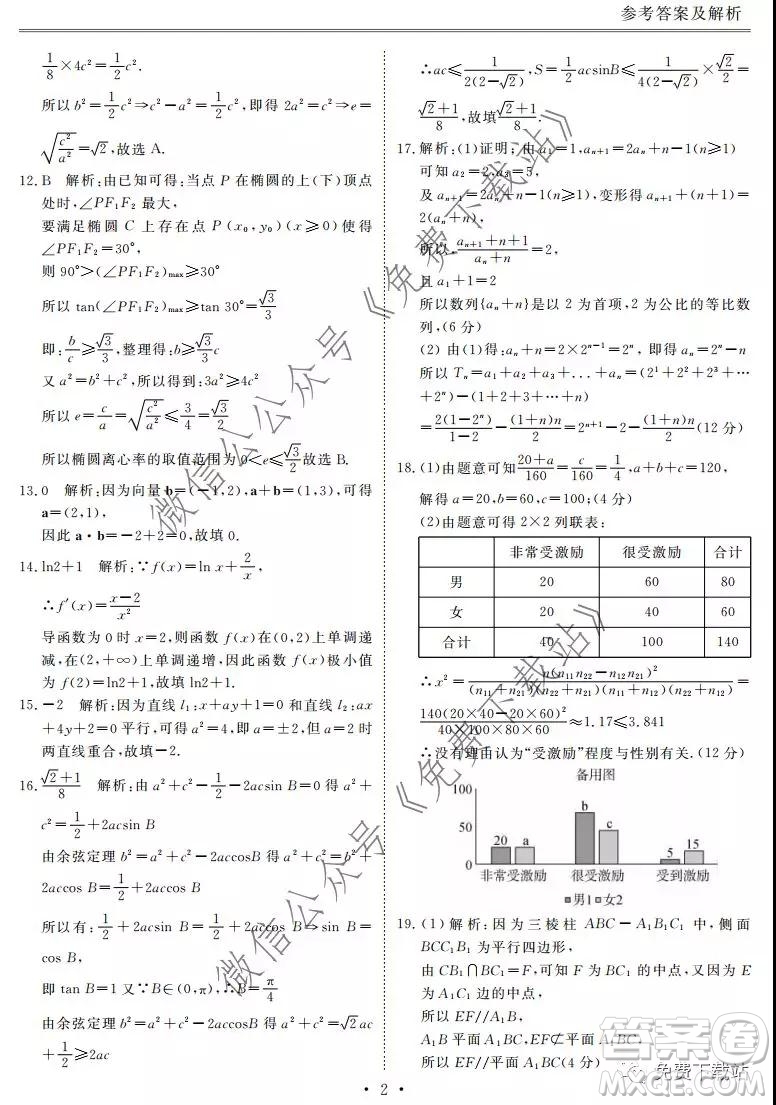 参考答案及解析
1/8×4c²=1/2c².
所以 b²=1/2c²⇒c²-a²=1/2c²,即得 2a²=c²⇒e=
√(c²/a²)=√2,故选 A.
12.B 解析:由已知可得:当点 P 在椭圆的上(下)顶点
处时,∠PF₁F₂ 最大,
要满足椭圆 C 上存在点 P(x₀,y₀)(x≥0)使得
∠PF₁F₂=30°,
则 90°>(∠PF₁F₂)max≥30°
所以 tan(∠PF₁F₂)max≥tan 30°=√3/3
即:b/c≥√3/3,整理得:b≥√3/3c
又 a²=b²+c²,所以得到:3a²≥4c²
所以 e=c/a=√(c²/a²)≤√(3/4)=√3/2
所以椭圆离心率的取值范围为 0<e≤√3/2故选 B.
13.0 解析:因为向量 b=(-1,2),a+b=(1,3),可得
a=(2,1),
因此 a·b=-2+2=0,故填 0.
14.ln2+1 解析:∵f(x)=ln x+2/x,
∴f′(x)=(x-2)/x²
导函数为 0 时 x=2,则函数 f(x)在(0,2)上单调递
减,在(2,+∞)上单调递增,因此函数 f(x)极小值
为 f(2)=ln2+1,故填 ln2+1.
15.-2 解析:因为直线 l₁:x+ay+1=0 和直线 l₂:ax
+4y+2=0 平行,可得 a²=4,即 a=±2,但 a=2 时
两直线重合,故填-2.
16.(√2+1)/8 解析:由 a²+c²-1/2-2acsin B=0 得 a²+
c²=1/2+2acsin B
由余弦定理 b²=a²+c²-2accosB 得 a²+c²=b²+
2accos B=1/2+2accos B
所以有:1/2+2acsin B=1/2+2accosB⇒sin B=
cos B,
即 tan B=1 又∵B∈(0,π),∴B=π/4
由余弦定理 b²=a²+c²-2accosB 得 a²+c²=√2ac
+1/2≥2ac
∴ac≤1/(2(2-√2)),S=1/2acsinB≤1/(4(2-√2))×√2/2=
(√2+1)/8,故填(√2+1)/8.
17.解析:(1)证明:由 a₁=1,aₙ₊₁=2aₙ+n-1(n≥1)
可知 a₂=2,a₃=5,
及 aₙ₊₁=2aₙ+n-1(n≥1),变形得 aₙ₊₁+(n+1)=
2(aₙ+n),
所以,(aₙ₊₁+n+1)/(aₙ+n)=2,
且 a₁+1=2
所以数列{aₙ+n}是以 2 为首项,2 为公比的等比数
列,(6 分)
(2) 由(1)得:aₙ+n=2×2ⁿ⁻¹=2ⁿ, 即得 aₙ=2ⁿ-n
所以 Tₙ=a₁+a₂+a₃+...+aₙ=(2¹+2²+2³+…
+2ⁿ)-(1+2+3+…+n)
=2(1-2ⁿ)/(1-2)-(1+n)n/2=2ⁿ⁺¹-2-(1+n)n/2(12 分)
18.(1)由题意可知(20+a)/160=c/160=1/4,a+b+c=120,
解得 a=20,b=60,c=100;(4 分)
(2)由题意可得 2×2 列联表:
非常受激励 很受激励 合计
男 20 60 80
女 20 40 60
合计 40 100 140
∴x²=n(n₁₁n₂₂-n₁₂n₂₁)²/((n₁₁+n₂₁)(n₁₂+n₂₂)(n₁₁+n₁₂)(n₂₁+n₂₂))=
140(20×40-20×60)²/(40×100×80×60)≈1.17≤3.841
∴没有理由认为“受激励”程度与性别有关.(12 分)
备用图
100
50
0
20 a b c 5 15
非常受激励 很受激励 受到激励
■男1■女2
19.(1) 解析:因为三棱柱 ABC-A₁B₁C₁ 中,侧面
BCC₁B₁ 为平行四边形,
由 CB₁∩BC₁=F,可知 F 为 BC₁ 的中点,又因为 E
为 A₁C₁ 边的中点,
所以 EF//A₁B,
A₁B 平面 A₁BC,EF⊄平面 A₁BC
所以 EF//平面 A₁BC(4 分)
· 2 ·
微信公众号《免费下载站》
微信公众号《免费下载站》
答案卷
免费下载站